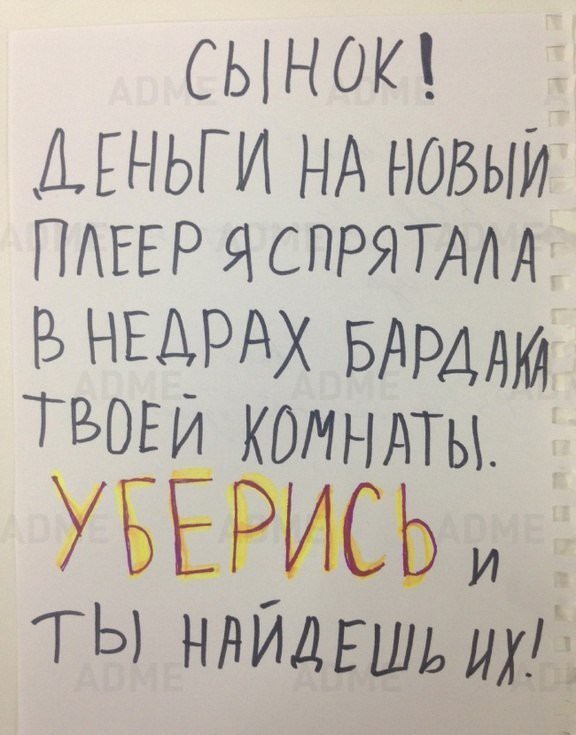 СЫНОК!
ДЕНЬГИ НА НОВЫЙ
ПЛЕЕР Я СПРЯТАЛА
В НЕДРАХ БАРДАКА
ТВОЕЙ КОМНАТЫ.
УБЕРИСЬ и
ТЫ НАЙДЕШЬ ИХ!
ADME ADME
ADME ADME ADME
ADME ADME ADME
ADME ADME ADME
ADME ADME ADME